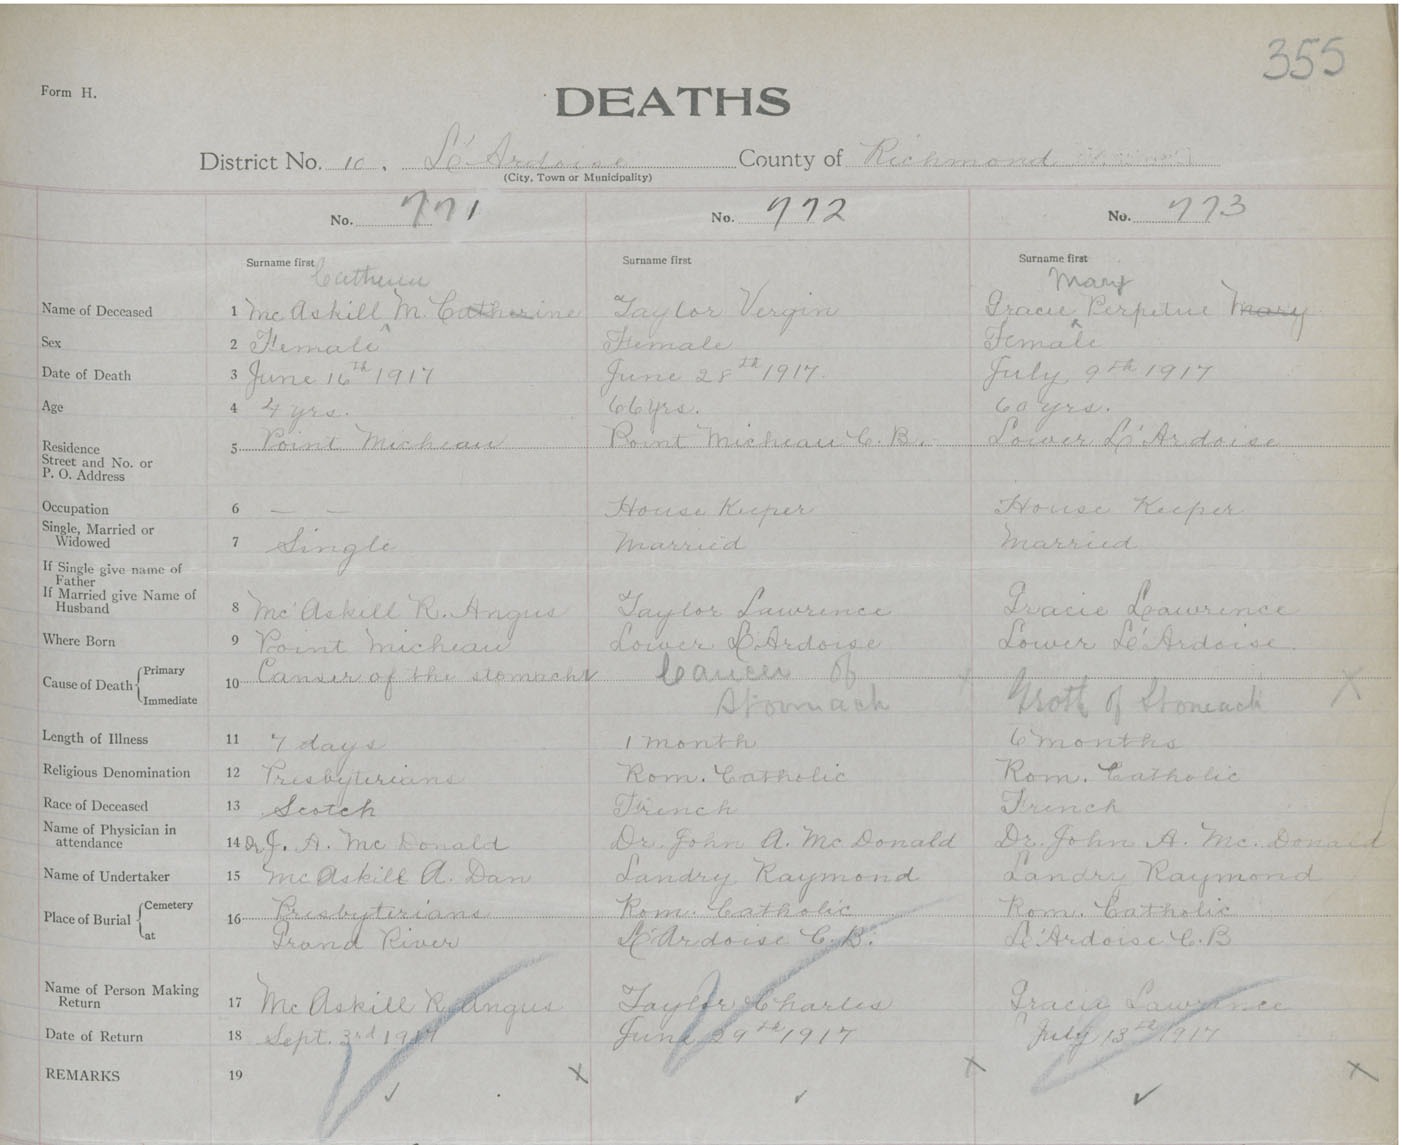 355
Form H.
DEATHS
District No. 10, L'Ardoise County of Richmond
(City, Town or Municipality)
No. 771 No. 772 No. 773
Surname first Surname first Surname first
Mary
Name of Deceased 1 Mc Askill M. Catherine Taylor Vergin Gracie Perpetue Mary
Sex 2 Female Female Female
Date of Death 3 June 16th 1917 June 28th 1917. July 9th 1917
Age 4 4 yrs. 66 yrs. 60 yrs.
Residence 5 Point Micheau Point Micheau C.B. Lower L'Ardoise
Street and No. or
P. O. Address
Occupation 6 — — House Keeper House Keeper
Single, Married or
Widowed 7 Single Married Married
If Single give name of
Father
If Married give Name of
Husband 8 Mc Askill R. Angus Taylor Lawrence Gracie Lawrence
Where Born 9 Point Micheau Lower L'Ardoise Lower L'Ardoise.
Cause of Death Primary 10 Canser of the stomach Cancer of
Immediate Stomach Groth of Stomach X
Length of Illness 11 7 days 1 month 6 months
Religious Denomination 12 Presbyterians Rom. Catholic Rom. Catholic
Race of Deceased 13 Scotch French French
Name of Physician in
attendance 14 Dr J. A. Mc Donald Dr. John A. Mc Donald Dr. John A. Mc. Donald
Name of Undertaker 15 Mc Askill A. Dan Landry Raymond Landry Raymond
Place of Burial Cemetery 16 Presbyterians Rom. Catholic Rom. Catholic
at Grand River L'Ardoise C.B. L'Ardoise C.B
Name of Person Making
Return 17 Mc Askill R. Angus Taylor Charles Gracie Lawrence
Date of Return 18 Sept. 3rd 1917 June 29th 1917 July 13th 1917
REMARKS 19 X X X